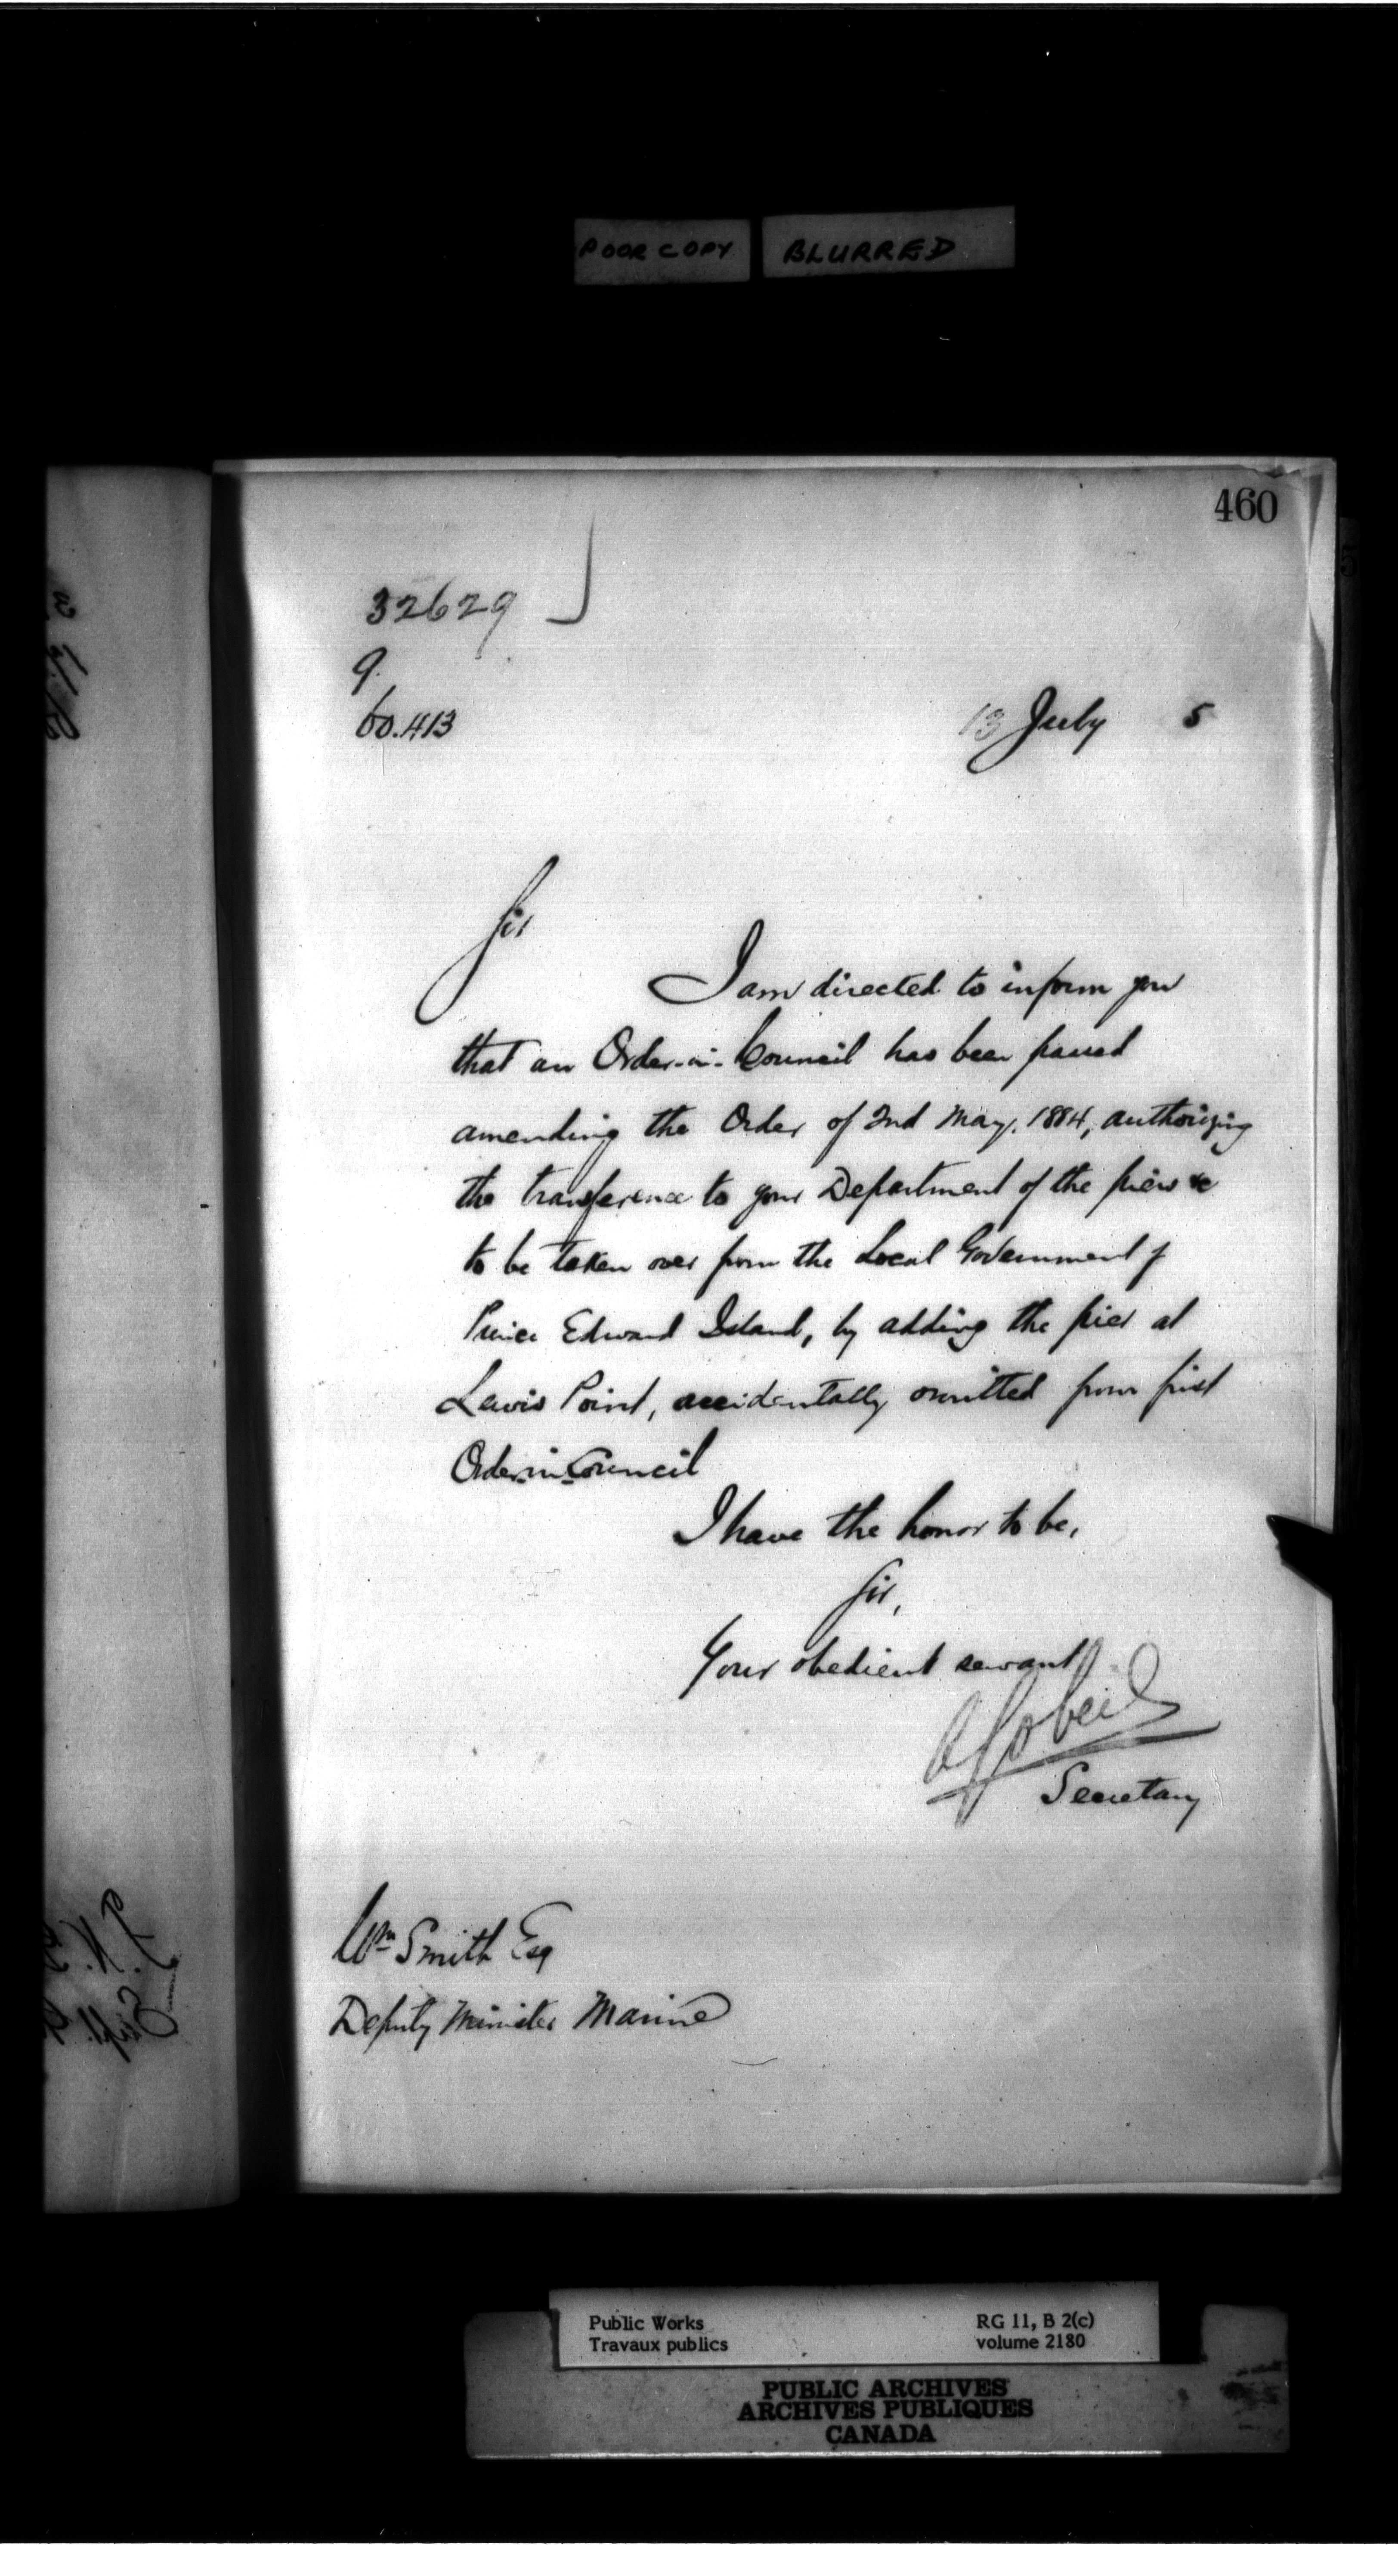 POOR COPY BLURRED
460
32629
9.
60.413
13 July 5
Sir
I am directed to inform you
that an Order-in-Council has been passed
amending the Order of 2nd May, 1884, authorizing
the transference to your Department of the piers &c
to be taken over from the Local Government of
Prince Edward Island, by adding the pier at
Lewis Point, accidentally omitted from first
Order-in-Council
I have the honor to be,
Sir,
Your obedient servant
A Gobeil
Secretary
Wm Smith Esq
Deputy Minister Marine
Public Works RG 11, B 2(c)
Travaux publics volume 2180
PUBLIC ARCHIVES
ARCHIVES PUBLIQUES
CANADA